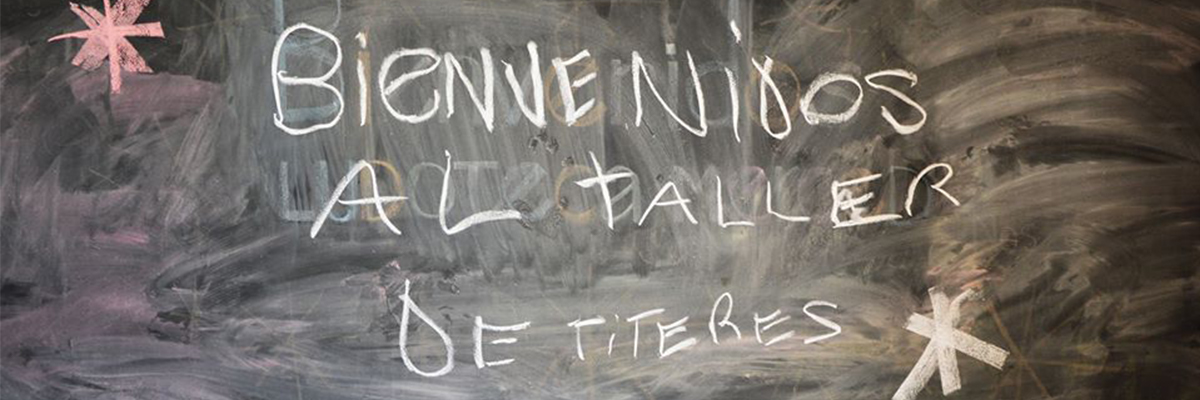 BiENVENiDOS
AL tALLER
DE TiTERES